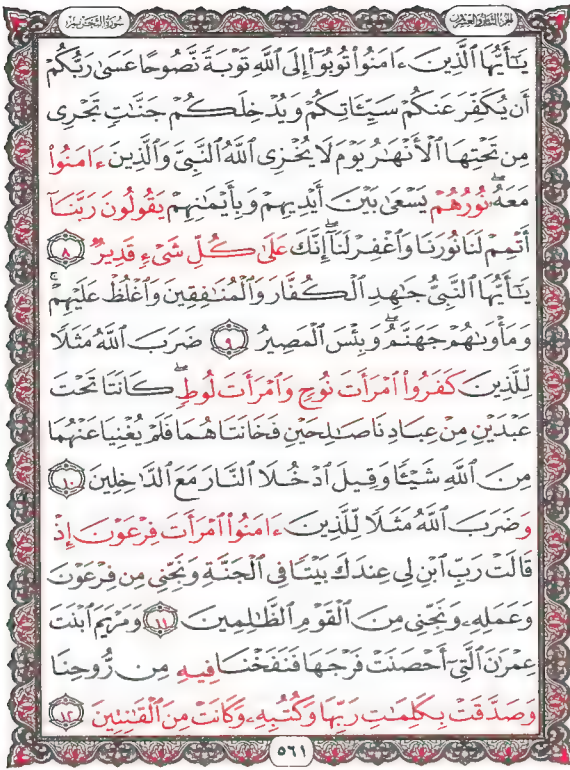 الجزء الثامن والعشرون
سورة التحريم
يَٰٓأَيُّهَا ٱلَّذِينَ ءَامَنُواْ تُوبُوٓاْ إِلَى ٱللَّهِ تَوۡبَةٗ نَّصُوحًا عَسَىٰ رَبُّكُمۡ
أَن يُكَفِّرَ عَنكُمۡ سَيِّـَٔاتِكُمۡ وَيُدۡخِلَكُمۡ جَنَّٰتٖ تَجۡرِي
مِن تَحۡتِهَا ٱلۡأَنۡهَٰرُ يَوۡمَ لَا يُخۡزِي ٱللَّهُ ٱلنَّبِيَّ وَٱلَّذِينَ ءَامَنُواْ
مَعَهُۥۖ نُورُهُمۡ يَسۡعَىٰ بَيۡنَ أَيۡدِيهِمۡ وَبِأَيۡمَٰنِهِمۡ يَقُولُونَ رَبَّنَآ
أَتۡمِمۡ لَنَا نُورَنَا وَٱغۡفِرۡ لَنَآۖ إِنَّكَ عَلَىٰ كُلِّ شَيۡءٖ قَدِيرٞ ٨
يَٰٓأَيُّهَا ٱلنَّبِيُّ جَٰهِدِ ٱلۡكُفَّارَ وَٱلۡمُنَٰفِقِينَ وَٱغۡلُظۡ عَلَيۡهِمۡۚ
وَمَأۡوَىٰهُمۡ جَهَنَّمُۖ وَبِئۡسَ ٱلۡمَصِيرُ ٩ ضَرَبَ ٱللَّهُ مَثَلٗا
لِّلَّذِينَ كَفَرُواْ ٱمۡرَأَتَ نُوحٖ وَٱمۡرَأَتَ لُوطٖۖ كَانَتَا تَحۡتَ
عَبۡدَيۡنِ مِنۡ عِبَادِنَا صَٰلِحَيۡنِ فَخَانَتَاهُمَا فَلَمۡ يُغۡنِيَا عَنۡهُمَا
مِنَ ٱللَّهِ شَيۡـٔٗا وَقِيلَ ٱدۡخُلَا ٱلنَّارَ مَعَ ٱلدَّٰخِلِينَ ١٠
وَضَرَبَ ٱللَّهُ مَثَلٗا لِّلَّذِينَ ءَامَنُواْ ٱمۡرَأَتَ فِرۡعَوۡنَ إِذۡ
قَالَتۡ رَبِّ ٱبۡنِ لِي عِندَكَ بَيۡتٗا فِي ٱلۡجَنَّةِ وَنَجِّنِي مِن فِرۡعَوۡنَ
وَعَمَلِهِۦ وَنَجِّنِي مِنَ ٱلۡقَوۡمِ ٱلظَّٰلِمِينَ ١١ وَمَرۡيَمَ ٱبۡنَتَ
عِمۡرَٰنَ ٱلَّتِيٓ أَحۡصَنَتۡ فَرۡجَهَا فَنَفَخۡنَا فِيهِ مِن رُّوحِنَا
وَصَدَّقَتۡ بِكَلِمَٰتِ رَبِّهَا وَكُتُبِهِۦ وَكَانَتۡ مِنَ ٱلۡقَٰنِتِينَ ١٢
٥٦١